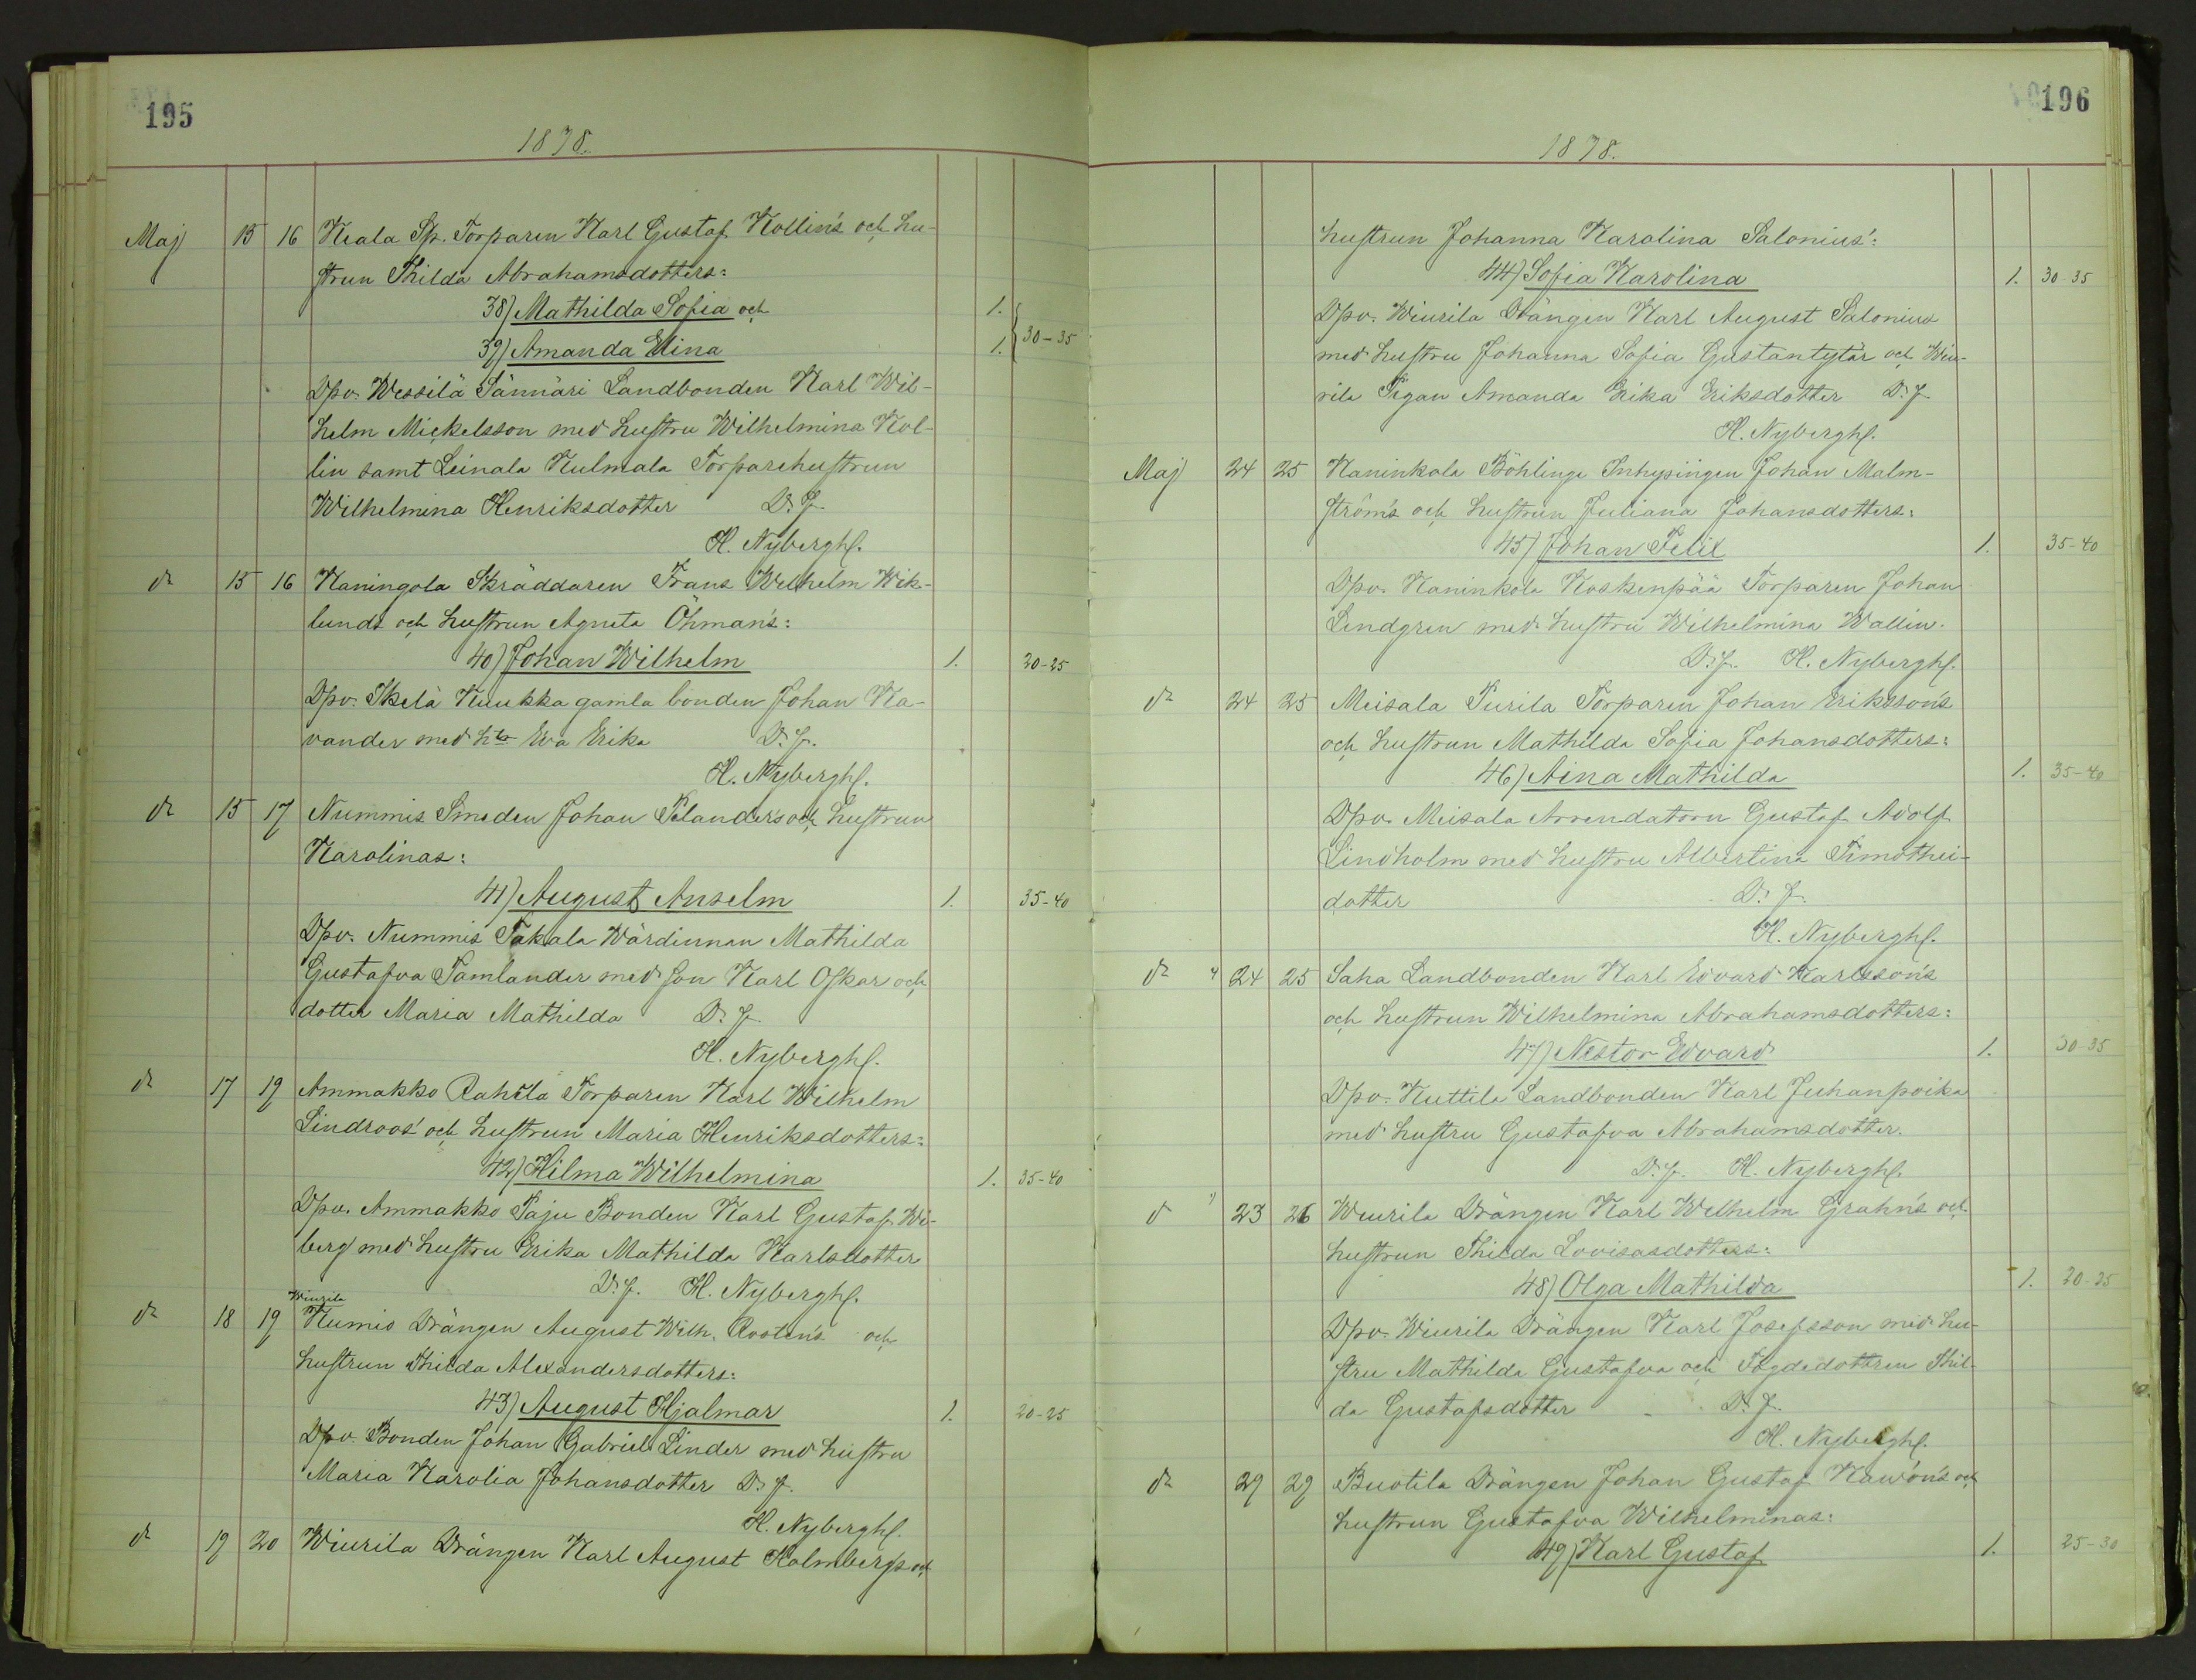 195
1878.
Maj 15 16 Keala Sp. Torparen Karl Gustaf Kollin's och hu-
strun Thilda Abrahamsdotters:
38) Mathilda Sofia och 1.
39) Amanda Elina 1. 30-35
Dpv. Wessilä Sännäri Landbonden Karl Wil-
helm Mickelsson med hustru Wilhelmina Kol-
lin samt Leinala Kulmala Torparehustrun
Wilhelmina Henriksdotter D. J.
H. Nybergh.
d:o 15 16 Kaningola Skräddaren Frans Wilhelm Wik-
lunds och hustrun Agneta Öhman's:
40) Johan Wilhelm 1. 20-25
Dpv. Isketä Kuukka gamla bonden Johan Ka-
vander med h:tr Eva Erika D. J.
H. Nybergh.
d:o 15 17 Nummis Smeden Johan Selanders och hustrun
Karolinas:
41) August Anselm 1. 35-40
Dpv. Nummis Takala Wärdinnan Mathilda
Gustafva Tamlander med son Karl Oskar och
dotter Maria Mathilda D. J.
H. Nybergh.
d:o 17 19 Ammakko Rahila Torparen Karl Wilhelm
Lindroos' och hustrun Maria Henriksdotters:
42) Hilma Wilhelmina 1. 35-40
Dpv. Ammakko Paju Bonden Karl Gustaf Wi-
berg med hustru Erika Mathilda Karlsdotter
D. J. H. Nybergh.
Wiurila
d:o 18 19 Kumio Drängen August Wilh. Rosten's och
hustrun Thilda Alexandersdotters:
43) August Hjalmar 1. 20-25
Dpv. Bonden Johan Gabriel Linder med hustru
Maria Karolia Johansdotter D. J.
H. Nybergh.
d:o 19 20 Wiurila Drängen Karl August Holmbergs och
196
1878.
hustrun Johanna Karolina Salonius':
44) Sofia Karolina 1. 30-35
Dpv. Wiurila Drängen Karl August Salonius
med hustru Johanna Sofia Gustantytär och Wiu-
rila Pigan Amanda Erika Eriksdotter D. J.
H. Nybergh.
Maj 24 25 Kaninkola Böhlinge Inhysingen Johan Malm-
ström's och hustrun Juliana Johansdotters:
45) Johan Felix 1. 35-40
Dpv. Kaninkola Koskenpää Torparen Johan
Lindgren med hustru Wilhelmina Wallin.
D. J. H. Nybergh.
d:o 24 25 Meisala Purila Torparen Johan Eriksson's
och hustrun Mathilda Sofia Johansdotters:
46) Aina Mathilda 1. 35-40
Dpv. Meisala Arrendatorn Gustaf Adolf
Lindholm med hustru Albertina Timothei-
dotter D. J.
H. Nybergh.
d:o " 24 25 Saha Landbonden Karl Edvard Karlsson's
och hustrun Wilhelmina Abrahamsdotters:
47) Nestor Edvard 1. 30-35
Dpv. Kuttila Landbonden Karl Juhanpoika
med hustru Gustafva Abrahamsdotter.
D. J. H. Nybergh.
d " 23 26 Wiurila Drängen Karl Wilhelm Grahn's och
hustrun Thilda Lovisasdotters:
48) Olga Mathilda 1. 20-25
Dpv. Wiurila Drängen Karl Josefsson med hu-
stru Mathilda Gustafva och Fogdedottren Thil-
da Gustafsdotter D. J.
H. Nybergh.
d:o 29 29 Buotila Drängen Johan Gustaf Kawön's och
hustrun Gustafva Wilhelminas:
49) Karl Gustaf 1. 25-30